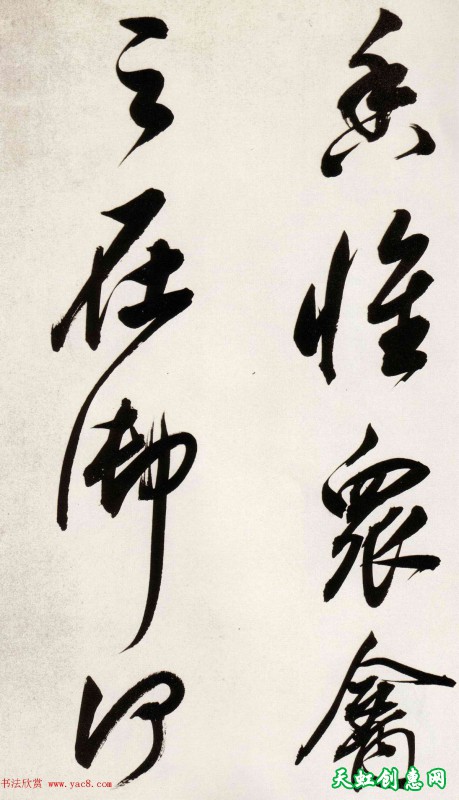 香惟衆禽
之在御何
书法欣赏 www.yac8.com
天虹创惠网